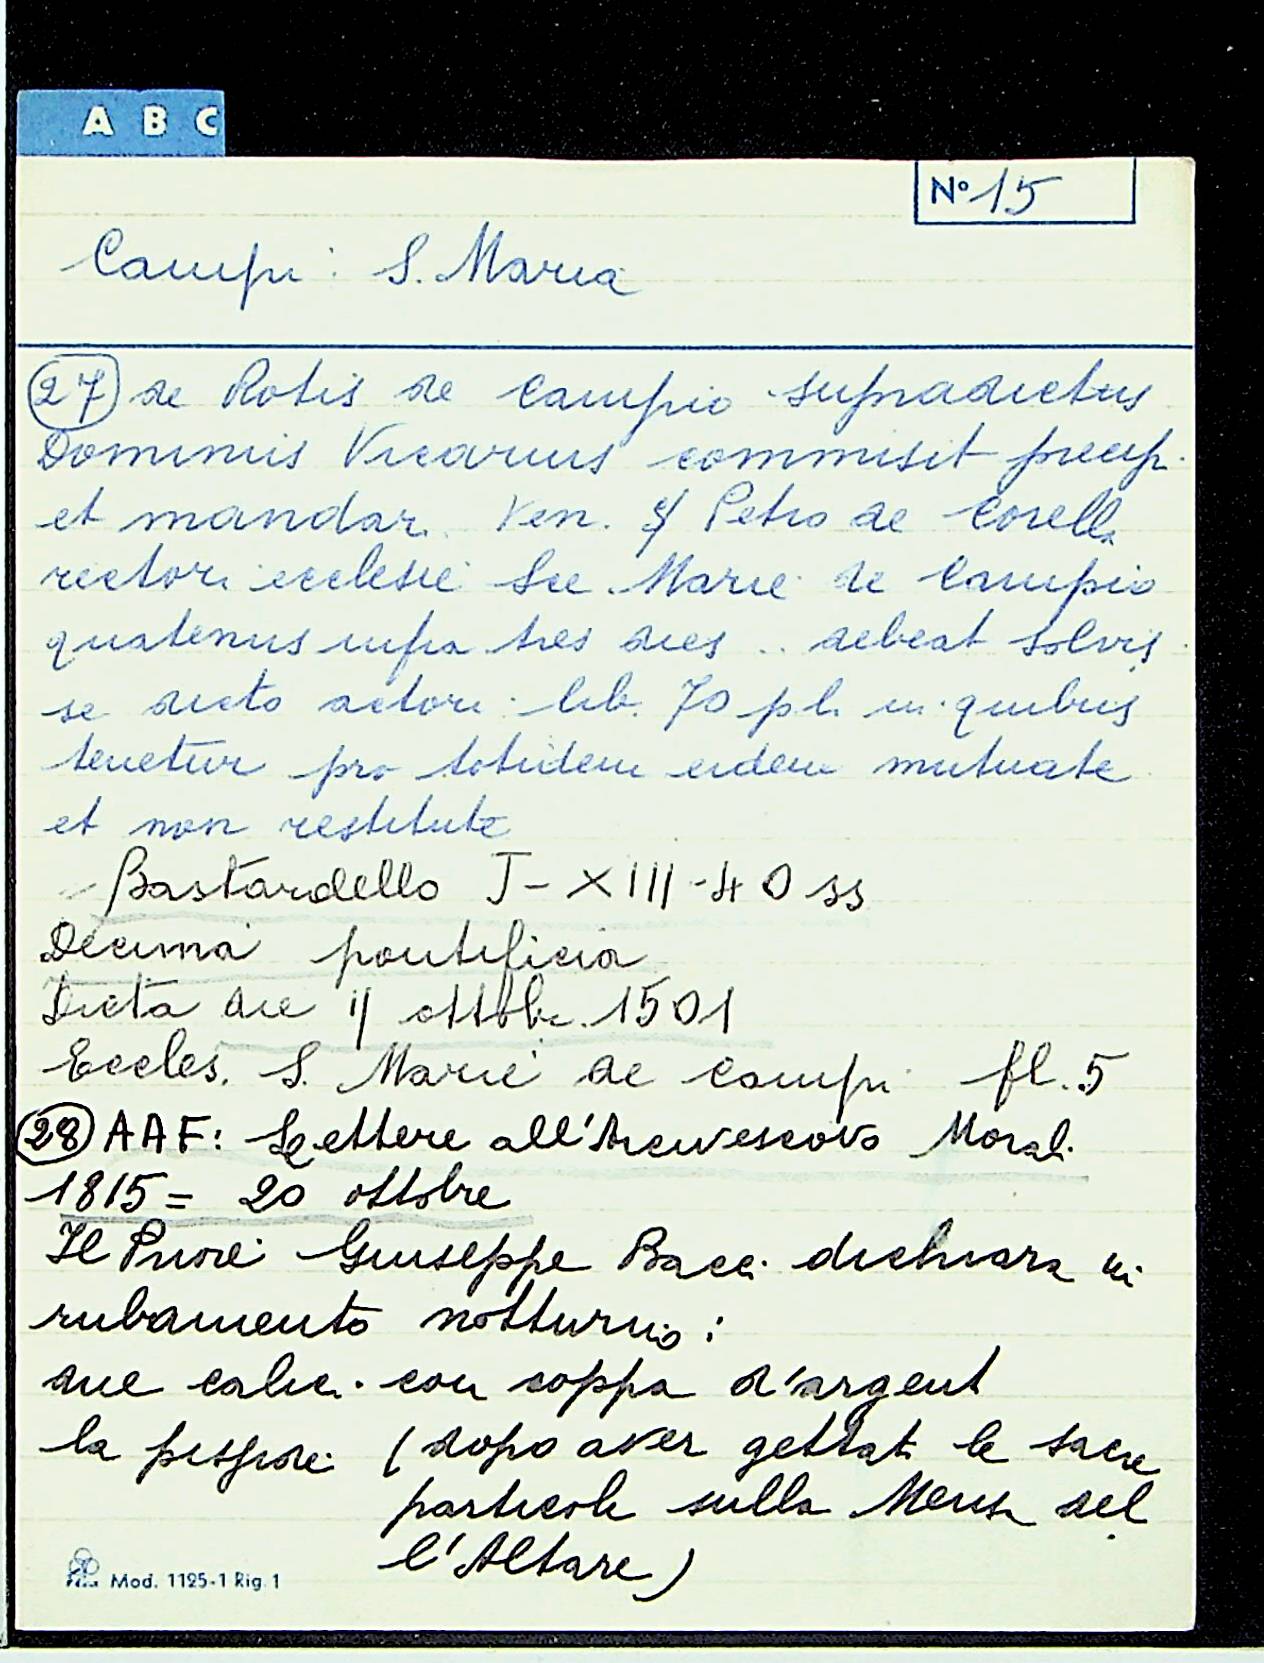 A B C
N° 15
Campi: S. Maria
27 de Rotis de Campio supradictus
Dominus Vicarius commisit precep.
et mandar. Ven. Petro de Corella
rectori ecclesie Sce. Marie de Campio
quatenus infra tres dies .. debeat solvis
se dicto actori lib. 70 pl. in quibus
tenetur pro totidem eidem mutuate
et non restitute
Bastardello J-XIII-40 ss
Decima pontificia
Dicta die 11 ottobr. 1501
Eccles. S. Marie de Campi fl. 5
28 AAF: Lettere all'Arcivescovo Morali
1815 = 20 ottobre
Il Priore Giuseppe Bacci dichiara in
rubamento notturno:
due calici con coppa d'argent
la pisside (dopo aver gettati le sacre
particole sulla Mensa del
l'Altare)
Mod. 1125-1 Rig. 1